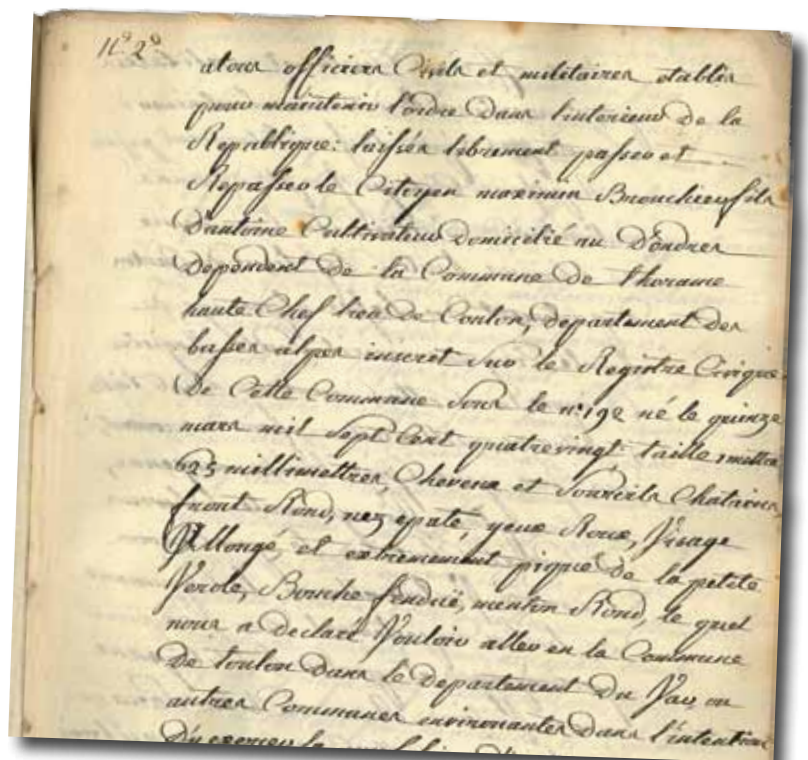 N° 2°
atous officiers Civils et militaires etablis
pour maintenir l'ordre dans l'interieur de la
Republique: laissés librement passer et
Repasser le Citoyen maximin fils
D'antoine Cultivateur domicilié au D'ondres
dependent de la Commune de thorame
haute Chef lieu de Conton, departement des
basses alpes inscret sur le Registre Civique
de Cette Commune sous le n°: 192 né le quinze
mars mil sept Cent quatrevingt taille 1 mettre
625 millimettres, Cheveux et Sourcils Chatains,
front Rond, nez epaté, yeux Roux, Visage
Allongé, et extremement piqué de la petite
Verole, Bouche fenduë, menton Rond, le quel
nous a declaré Vouloir aller en la Commune
de toulon dans le departement du Var ou
autres Communes environantes dans l'intention
D'y exercer